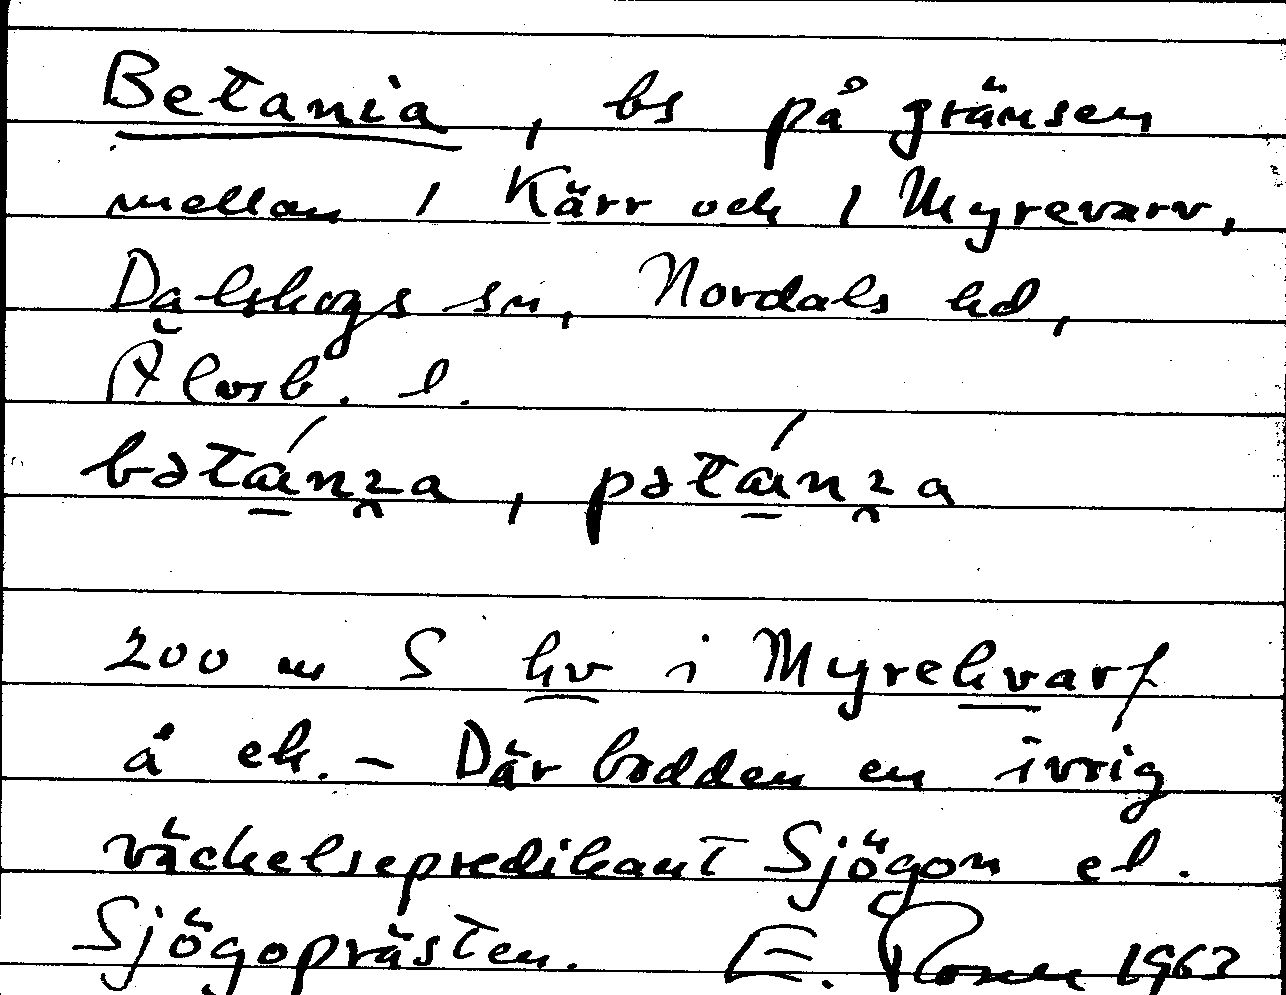 Betania, bs på gränsen
mellan 1 Kärr och 1 Myrevarv,
Dalskogs sn, Nordals hd,
Älvsb. l.
200 m S hv i Myrehvarf
å ek. – Där bodden en ivrig
väckelsepredikant Sjögom el.
Sjögoprästen. E. Rosen 1963